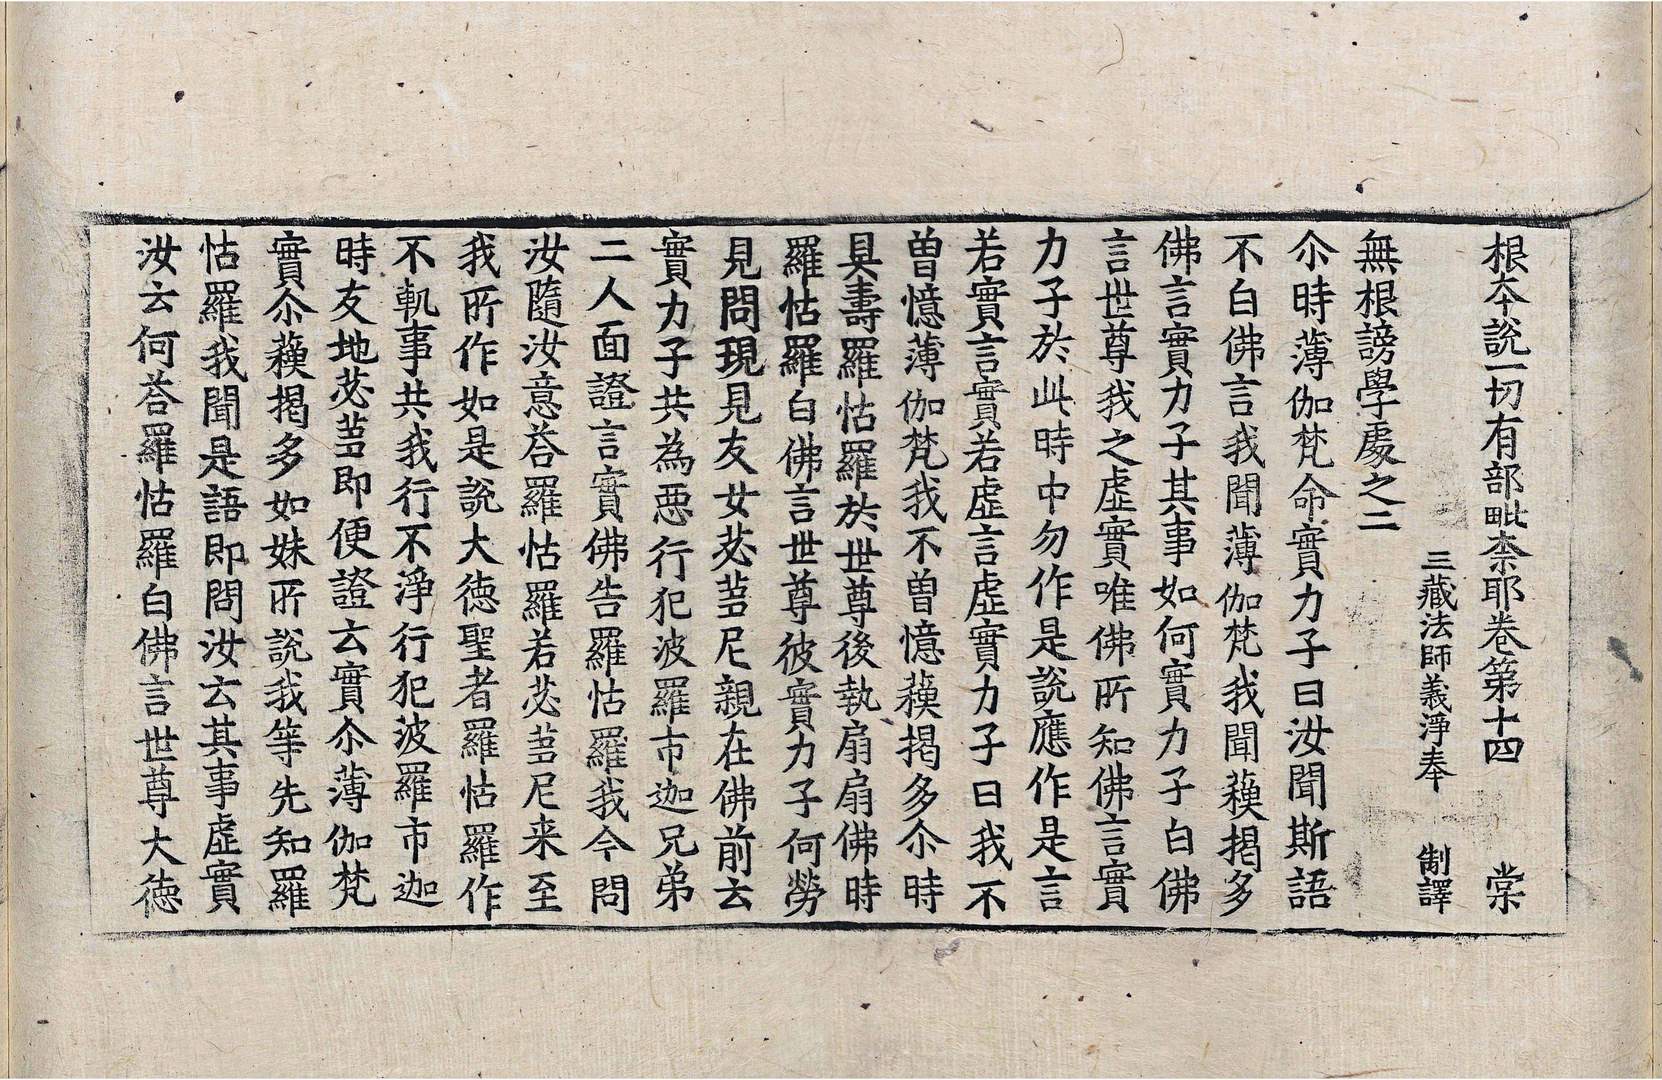 根本說一切有部毗柰耶卷第十四 棠
三藏法師義淨奉 制譯
無根謗學處之二
尒時薄伽梵命實力子曰汝聞斯語
不白佛言我聞薄伽梵我聞蘱揭多
佛言實力子其事如何實力子白佛
言世尊我之虛實唯佛所知佛言實
力子於此時中勿作是說應作是言
若實言實若虛言虛實力子曰我不
曾憶薄伽梵我不曾憶蘱揭多尒時
具壽羅怙羅於世尊後執扇扇佛時
羅怙羅白佛言世尊彼實力子何勞
見問現見友女苾芻尼親在佛前云
實力子共為惡行犯波羅市迦兄弟
二人面證言實佛告羅怙羅我今問
汝隨汝意荅羅怙羅若苾芻尼来至
我所作如是說大德聖者羅怙羅作
不軌事共我行不淨行犯波羅市迦
時友地苾芻即便證云實尒薄伽梵
實尒蘱揭多如妹所說我等先知羅
怙羅我聞是語即問汝云其事虛實
汝云何荅羅怙羅白佛言世尊大德